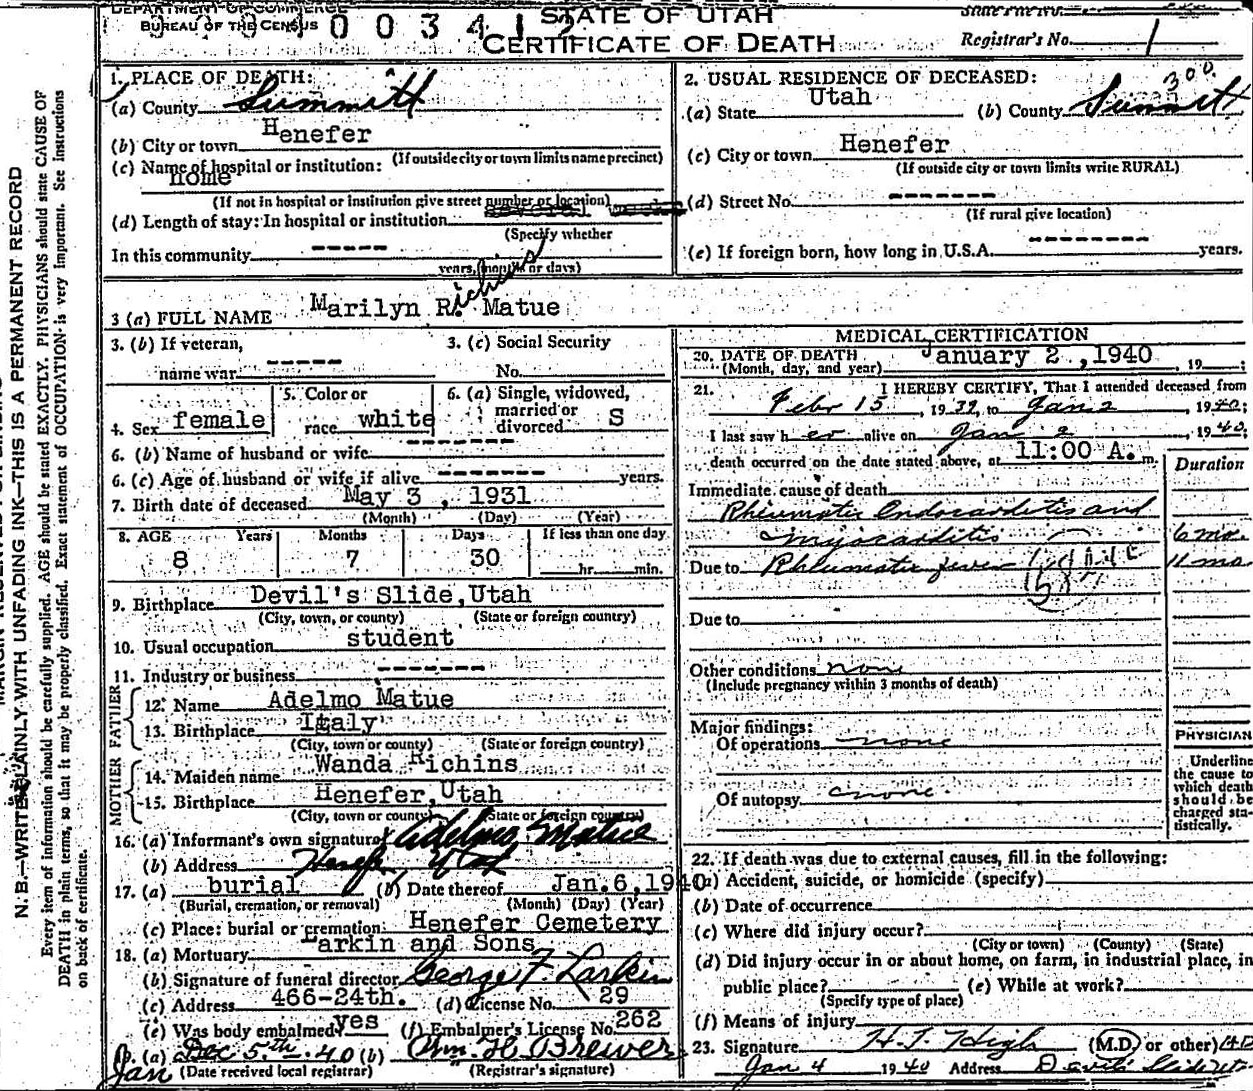 DEPARTMENT OF COMMERCE
BUREAU OF THE CENSUS
STATE OF UTAH
CERTIFICATE OF DEATH
State File No.
Registrar's No. 1
1. PLACE OF DEATH:
(a) County Summitt
(b) City or town Henefer
(If outside city or town limits name precinct)
(c) Name of hospital or institution:
home
(If not in hospital or institution give street number or location)
(d) Length of stay: In hospital or institution
(Specify whether
In this community -----
years, months or days)
2. USUAL RESIDENCE OF DECEASED:
300.
(a) State Utah (b) County Summitt
(c) City or town Henefer
(If outside city or town limits write RURAL)
(d) Street No. -------
(If rural give location)
(e) If foreign born, how long in U.S.A. -------- years.
3 (a) FULL NAME Marilyn Richins Matue
3. (b) If veteran,
name war -----
3. (c) Social Security
No.
4. Sex female
5. Color or
race white
6. (a) Single, widowed,
married or
divorced S
6. (b) Name of husband or wife -------
6. (c) Age of husband or wife if alive ------- years.
7. Birth date of deceased May 3, 1931
(Month) (Day) (Year)
8. AGE Years Months Days If less than one day
8 7 30 hr. min.
9. Birthplace Devil's Slide, Utah
(City, town, or county) (State or foreign country)
10. Usual occupation student
11. Industry or business -------
FATHER
12. Name Adelmo Matue
13. Birthplace Italy
(City, town or county) (State or foreign country)
MOTHER
14. Maiden name Wanda Richins
15. Birthplace Henefer, Utah
(City, town or county) (State or foreign country)
16. (a) Informant's own signature Adelmo Matue
(b) Address Henefer Utah
17. (a) burial (b) Date thereof Jan. 6, 1940
(Burial, cremation, or removal) (Month) (Day) (Year)
(c) Place: burial or cremation: Henefer Cemetery
18. (a) Mortuary Larkin and Sons
(b) Signature of funeral director George F Larkin
(c) Address 466-24th. (d) License No. 29
(e) Was body embalmed yes (f) Embalmer's License No. 262
(a) Dec 5th. 40 (b) Wm. H. Brewer
Jan (Date received local registrar) (Registrar's signature)
MEDICAL CERTIFICATION
20. DATE OF DEATH January 2, 1940, 19
(Month, day, and year)
21. I HEREBY CERTIFY, That I attended deceased from
Febr 15, 1939, to Jan 2, 1940;
I last saw her alive on Jan 2, 1940;
death occurred on the date stated above, at 11:00 A. m.
Duration
Immediate cause of death
Rheumatic Endocarditis and
myocarditis 6 mo.
Due to Rheumatic fever 11 mo.
Due to
Other conditions none
(Include pregnancy within 3 months of death)
Major findings:
Of operations none
Of autopsy none
PHYSICIAN
Underline
the cause to
which death
should be
charged sta-
tistically.
22. If death was due to external causes, fill in the following:
(a) Accident, suicide, or homicide (specify)
(b) Date of occurrence
(c) Where did injury occur?
(City or town) (County) (State)
(d) Did injury occur in or about home, on farm, in industrial place, in
public place? (e) While at work?
(Specify type of place)
(f) Means of injury
23. Signature (M.D. or other) M.D.
Jan 4 1940 Address Devils Slide Ut
N. B.—WRITE PLAINLY WITH UNFADING INK—THIS IS A PERMANENT RECORD
Every item of information should be carefully supplied. AGE should be stated EXACTLY. PHYSICIANS should state CAUSE OF
DEATH in plain terms, so that it may be properly classified. Exact statement of OCCUPATION is very important. See instructions
on back of certificate.